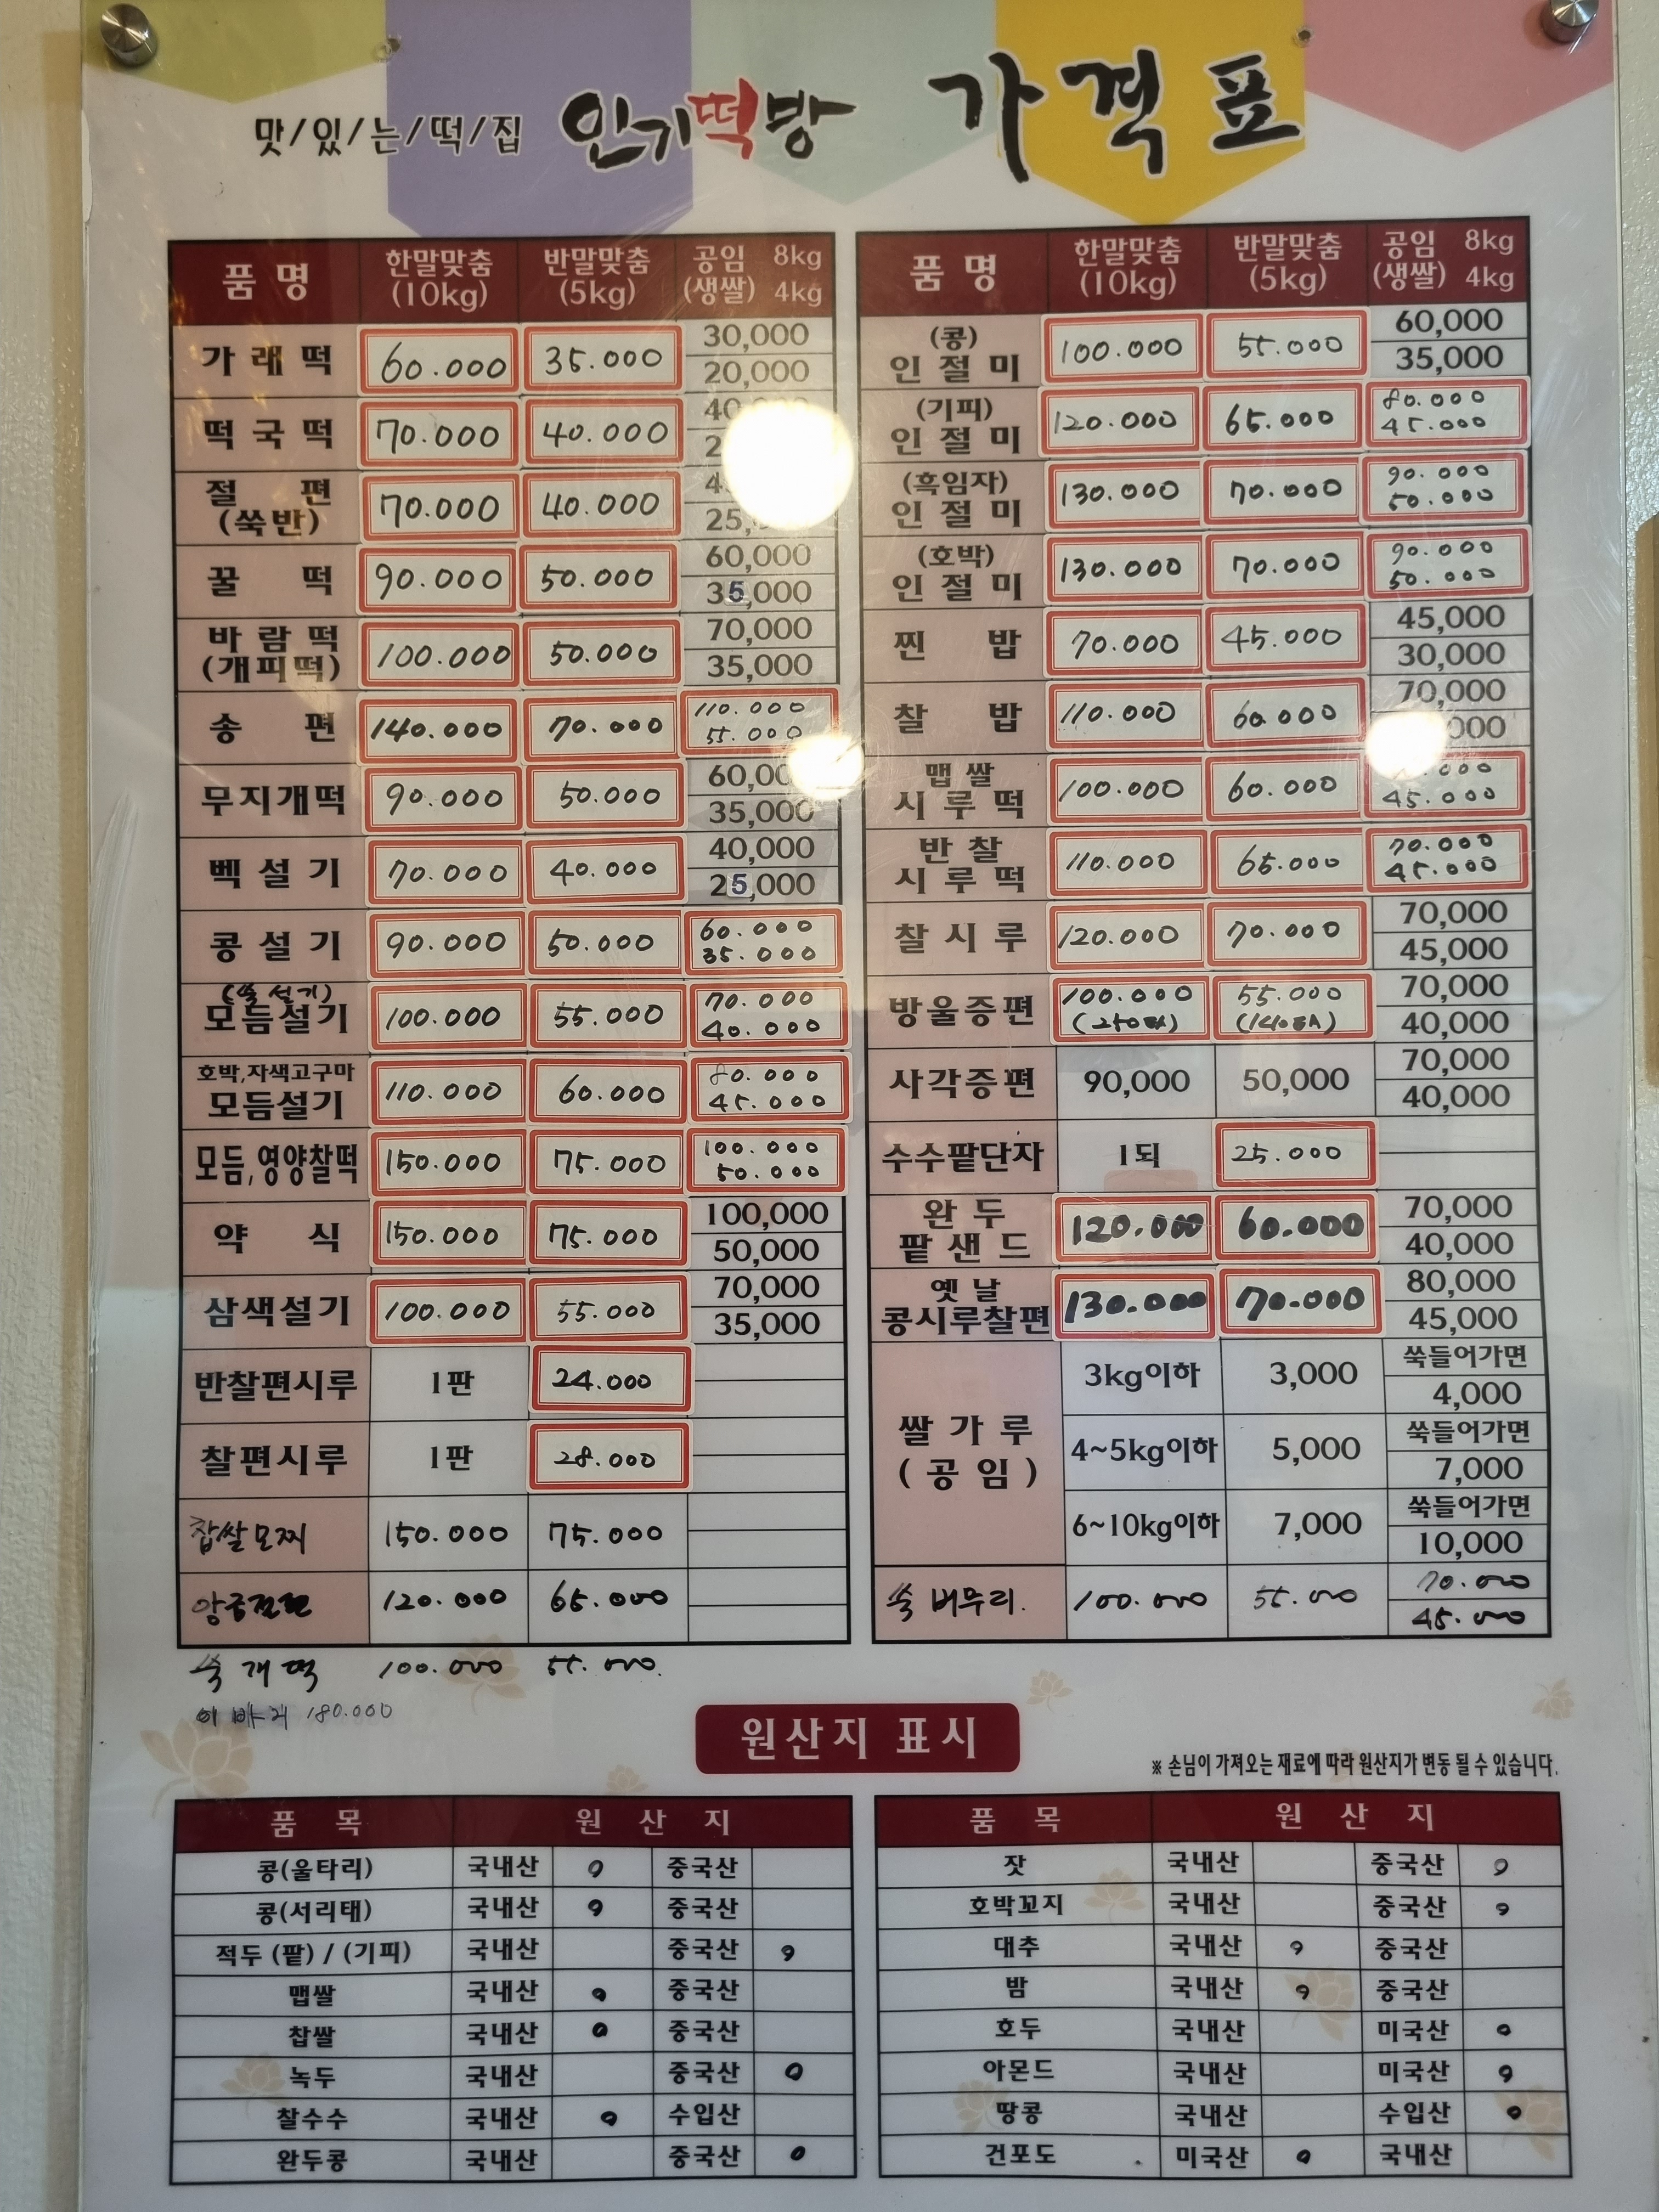 맛/있/는/떡/집 인기떡방 가격표
품명 한말맞춤 (10kg) 반말맞춤 (5kg) 공임 (생쌀) 8kg 4kg
가래떡 60.000 35.000 30,000 20,000
떡국떡 70.000 40.000
절편 (쑥반) 70.000 40.000
꿀떡 90.000 50.000 60,000 35,000
바람떡 (개피떡) 100.000 50.000 70,000 35,000
송편 140.000 70.000 110.000 55.000
무지개떡 90.000 50.000 35,000
벡설기 70.000 40.000 40,000 25,000
콩설기 90.000 50.000 60.000 35.000
(쑥설기) 모듬설기 100.000 55.000 70.000 40.000
호박,자색고구마 모듬설기 110.000 60.000 80.000 45.000
모듬,영양찰떡 150.000 75.000 100.000 50.000
약식 150.000 75.000 100,000 50,000
삼색설기 100.000 55.000 70,000 35,000
반찰편시루 1판 24.000
찰편시루 1판 28.000
찹쌀모찌 150.000 75.000
앙금절편 120.000 65.000
쑥개떡 100.000 55.000.
이바지 180.000
품명 한말맞춤 (10kg) 반말맞춤 (5kg) 공임 (생쌀) 8kg 4kg
(콩) 인절미 100.000 55.000 60,000 35,000
(기피) 인절미 120.000 65.000 80.000 45.000
(흑임자) 인절미 130.000 70.000 90.000 50.000
(호박) 인절미 130.000 70.000 90.000 50.000
찐밥 70.000 45.000 45,000 30,000
찰밥 110.000 60.000 70,000
맵쌀 시루떡 100.000 60.000 45.000
반찰 시루떡 110.000 65.000 70.000 45.000
찰시루 120.000 70.000 70,000 45,000
방울증편 100.000 55.000 70,000 40,000
사각증편 90,000 50,000 70,000 40,000
수수팥단자 1되 25.000
완두 팥샌드 120.000 60.000 70,000 40,000
옛날 콩시루찰편 130.000 70.000 80,000 45,000
쌀가루 (공임) 3kg이하 3,000 쑥들어가면 4,000
4~5kg이하 5,000 쑥들어가면 7,000
6~10kg이하 7,000 쑥들어가면 10,000
쑥버무리. 100.000 55.000 70.000 45.000
원산지 표시
※ 손님이 가져오는 재료에 따라 원산지가 변동 될 수 있습니다.
품목 원산지
콩(울타리) 국내산 o 중국산
콩(서리태) 국내산 o 중국산
적두 (팥) / (기피) 국내산 중국산 o
맵쌀 국내산 o 중국산
찹쌀 국내산 o 중국산
녹두 국내산 중국산 o
찰수수 국내산 o 수입산
완두콩 국내산 중국산 o
품목 원산지
잣 국내산 중국산 o
호박꼬지 국내산 중국산 o
대추 국내산 o 중국산
밤 국내산 o 중국산
호두 국내산 미국산 o
아몬드 국내산 미국산 o
땅콩 국내산 수입산 o
건포도 미국산 o 국내산